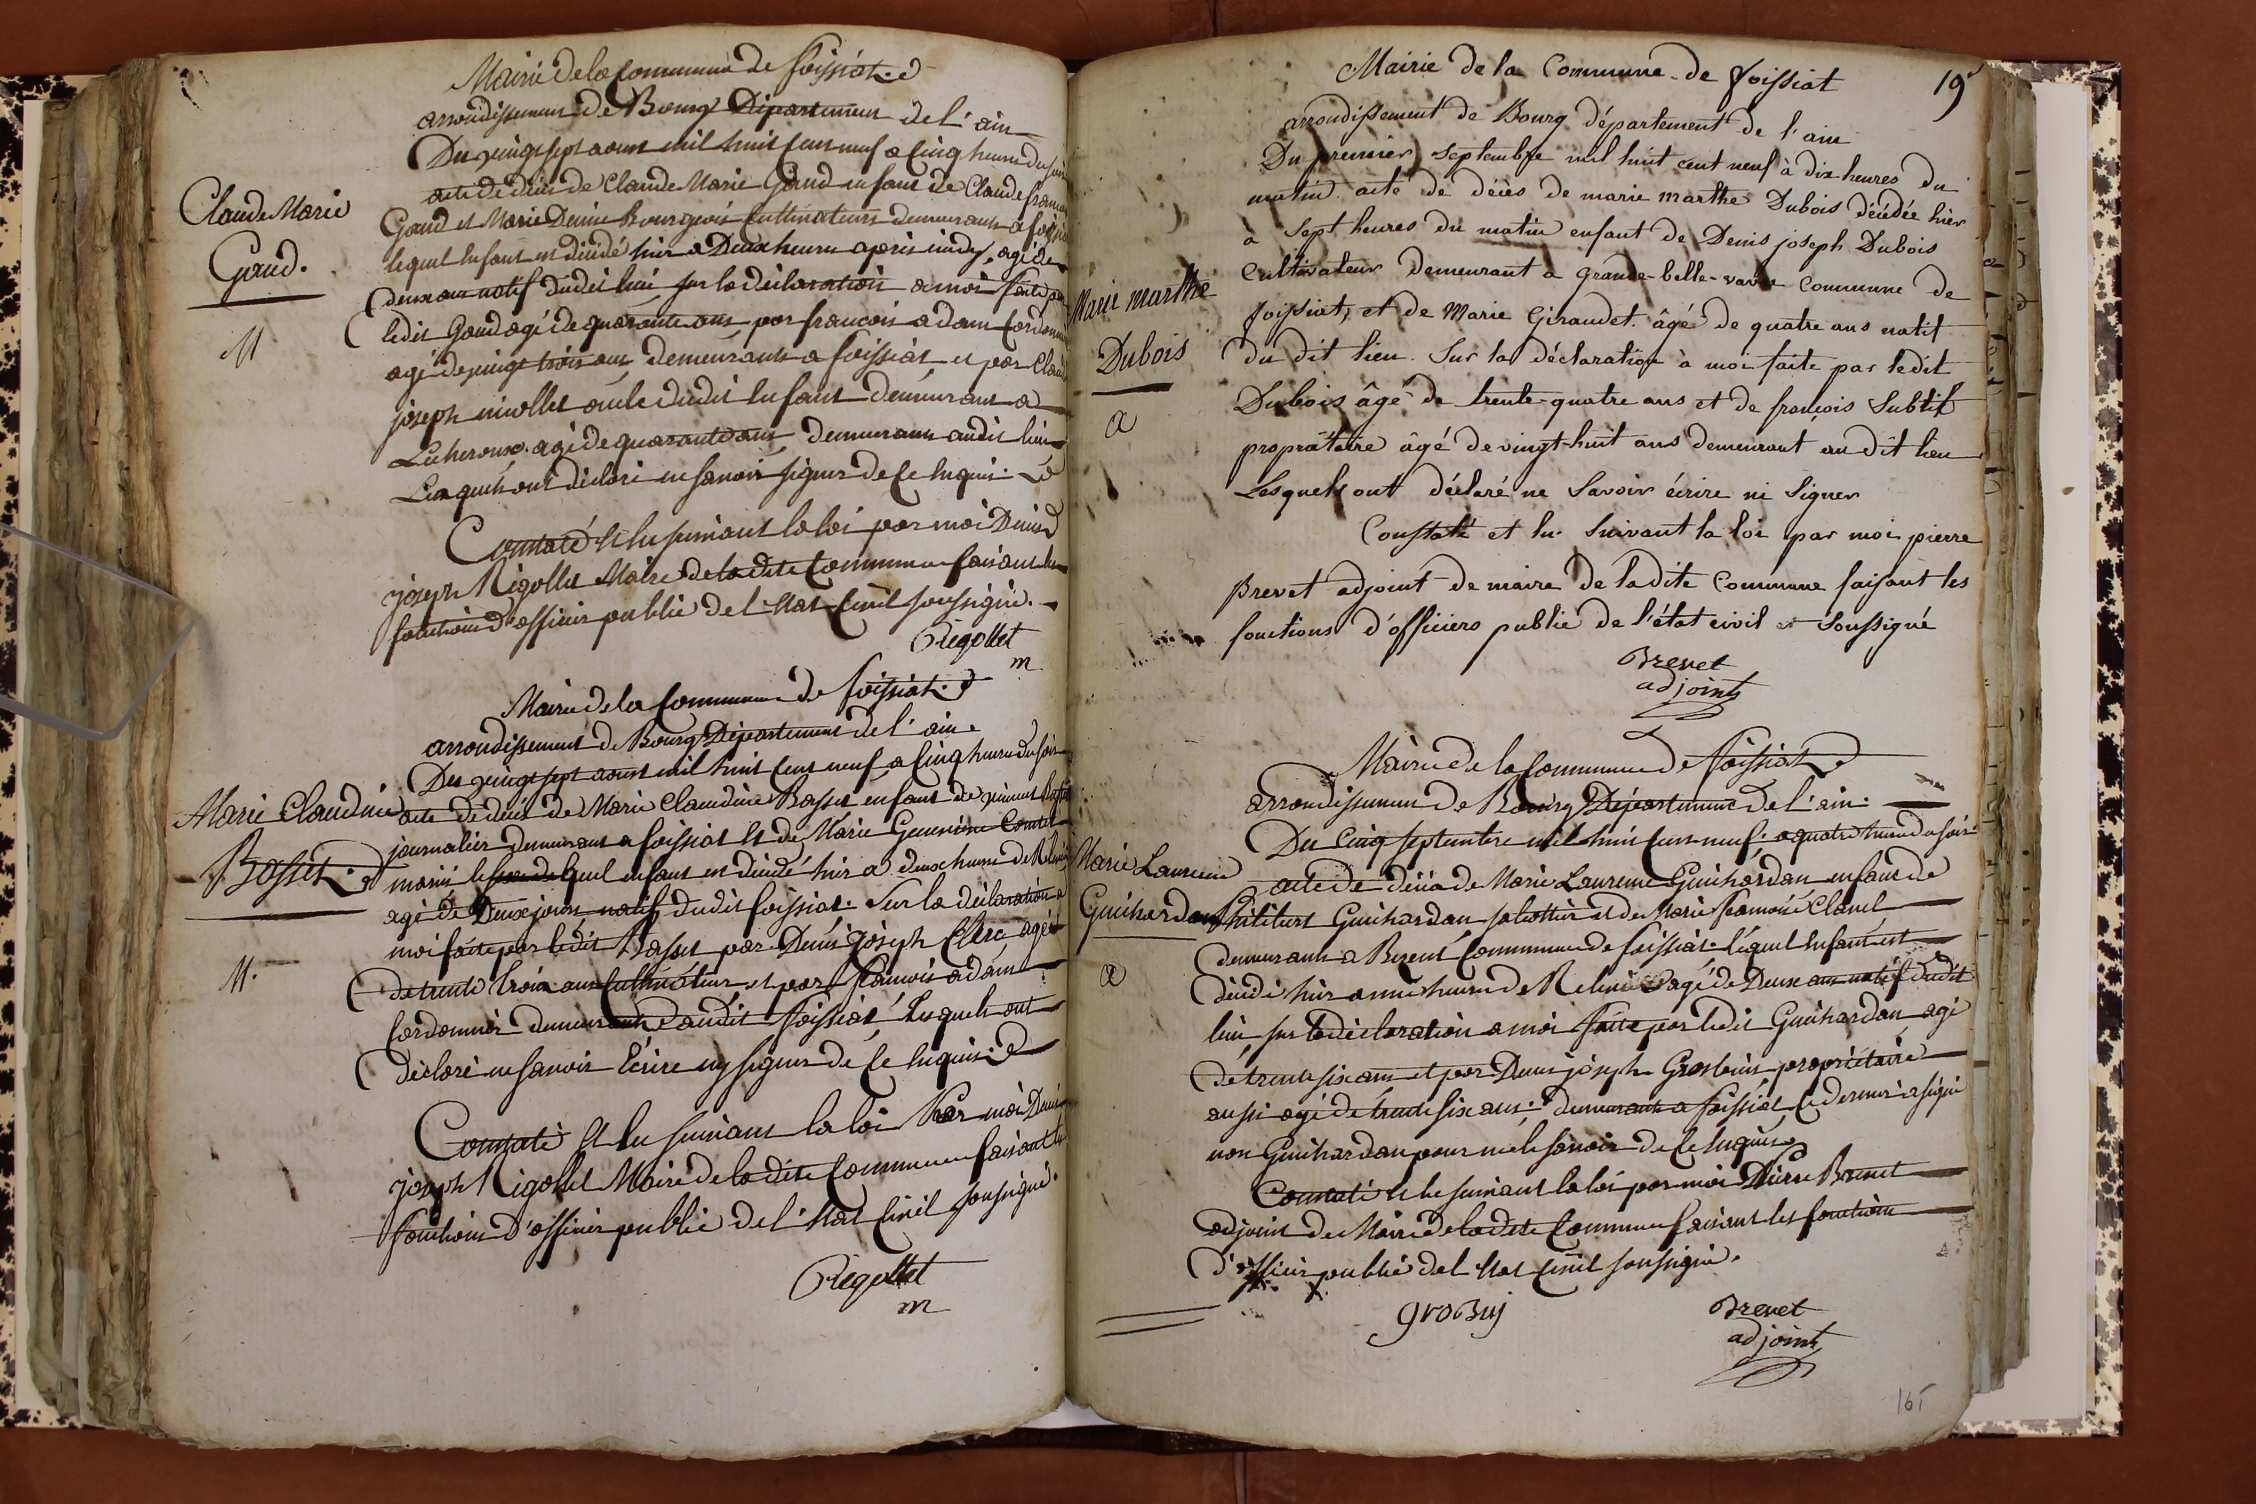 Mairie de la Commune de foissiat
arrondissement de Bourg Département de l'ain
Du vingt sept aoust mil huit Cent neuf a Cinq heure du soir
acte de décès de Claude Marie Gaud enfant de Claude françois
Gaud et Marie Denise Bourgeois Cultivateurs demeurants a foissiat
lequel enfant est décédé hier a Deux heures après midy, agé de
deux ans natif dudit lieu sur la déclaration a moi faite par
ledit Gaud agé de quarante ans par francois adam Cordonnier
agé de vingt trois ans demeurants a foissiat et par Claude
joseph nicollet oncle dudit enfant demeurant a
Lecheroux agé de quarante ans demeurant audit lieu
Lesquels ont déclaré ne savoir signer de ce enquis
Constaté et lu suivant la loi par moi Denis
joseph Rigollet Maire de la dite Commune faisant les
fonctions d'officier public de l'Etat Civil soussigné.
Rigollet
m
Claude Marie
Gaud.
M
Mairie de la Commune de foissiat
arrondissement de Bourg Département de l'ain
Du vingt sept aoust mil huit Cent neuf a Cinq heure du soir
acte de décès de Marie Claudine Basset enfant de vincent Basset
journalier demeurant a foissiat et de Marie Genevieve Comtet
mariés lequel enfant est décédé hier a deux heure de Relevée
agé de Deux jours natif dudit foissiat. Sur la déclaration a
moi faite par ledit Basset par Denis joseph Clerc agé
de trente trois ans Cultivateur et par francois adam
Cordonnier demeurants audit foissiat Lesquels ont
déclaré ne savoir Ecrire ny signer de ce enquis
Constaté et lu suivant la loi Par moi Denis
joseph Rigollet Maire de la dite Commune faisant les
fonctions d'officier public de l'Etat Civil soussigné.
Rigollet
m
Marie Claudine
Basset
M.
19
Mairie de la Commune de foissiat
arrondissement de Bourg département de l'ain
Du premier Septembre mil huit cent neuf à dix heures du
matin acte de décès de marie marthe Dubois décédée hier
à Sept heures du matin enfant de Denis joseph Dubois
Cultivateur demeurant a grande-belle-vavre Commune de
foissiat, et de Marie Giraudet âgé de quatre ans natif
du dit lieu. Sur la déclaration à moi faite par ledit
Dubois âgé de trente-quatre ans et de françois Subtil
propriétaire âgé de vingt-huit ans demeurant au dit lieu
Lesquels ont déclaré ne Savoir écrire ni Signer
Constaté et lu Suivant la loi par moi pierre
Brevet adjoint de maire de la dite Commune faisant les
fonctions d'officiers public de l'état civil et Soussigné
Brevet
adjoint
Marie marthe
Dubois
a
Mairie de la Commune de foissiat
arrondissement de Bourg Département de l'ain
Du Cinq septembre mil huit Cent neuf a quatre heure du soir
acte de décès de Marie Laurence Guichardan enfant de
Philibert Guichardan sabottier et de Marie françoise Clavel
demeurants a Bezent Commune de foissiat lequel enfant est
décédé hier a une heure de Relevée agé de Deux ans natif dudit
lieu sur la déclaration a moi faite par ledit Guichardan agé
de trente six ans et par Denis joseph Grosbuis propriétaire
aussi agé de trente six ans demeurants a foissiat ce dernier a signé
non Guichardan pour ne le savoir de ce enquis
Constaté et lu suivant la loi par moi Pierre Brevet
adjoint de Maire de la dite Commune faisant les fonctions
d'officier public de l'Etat Civil soussigné.
groBuy
Brevet
adjoint
Marie Laurence
Guichardan
a
165